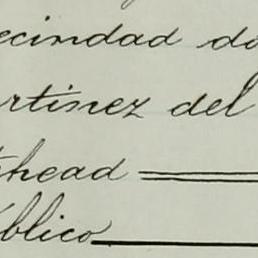 ecindad do
rtinez del
thead
blico